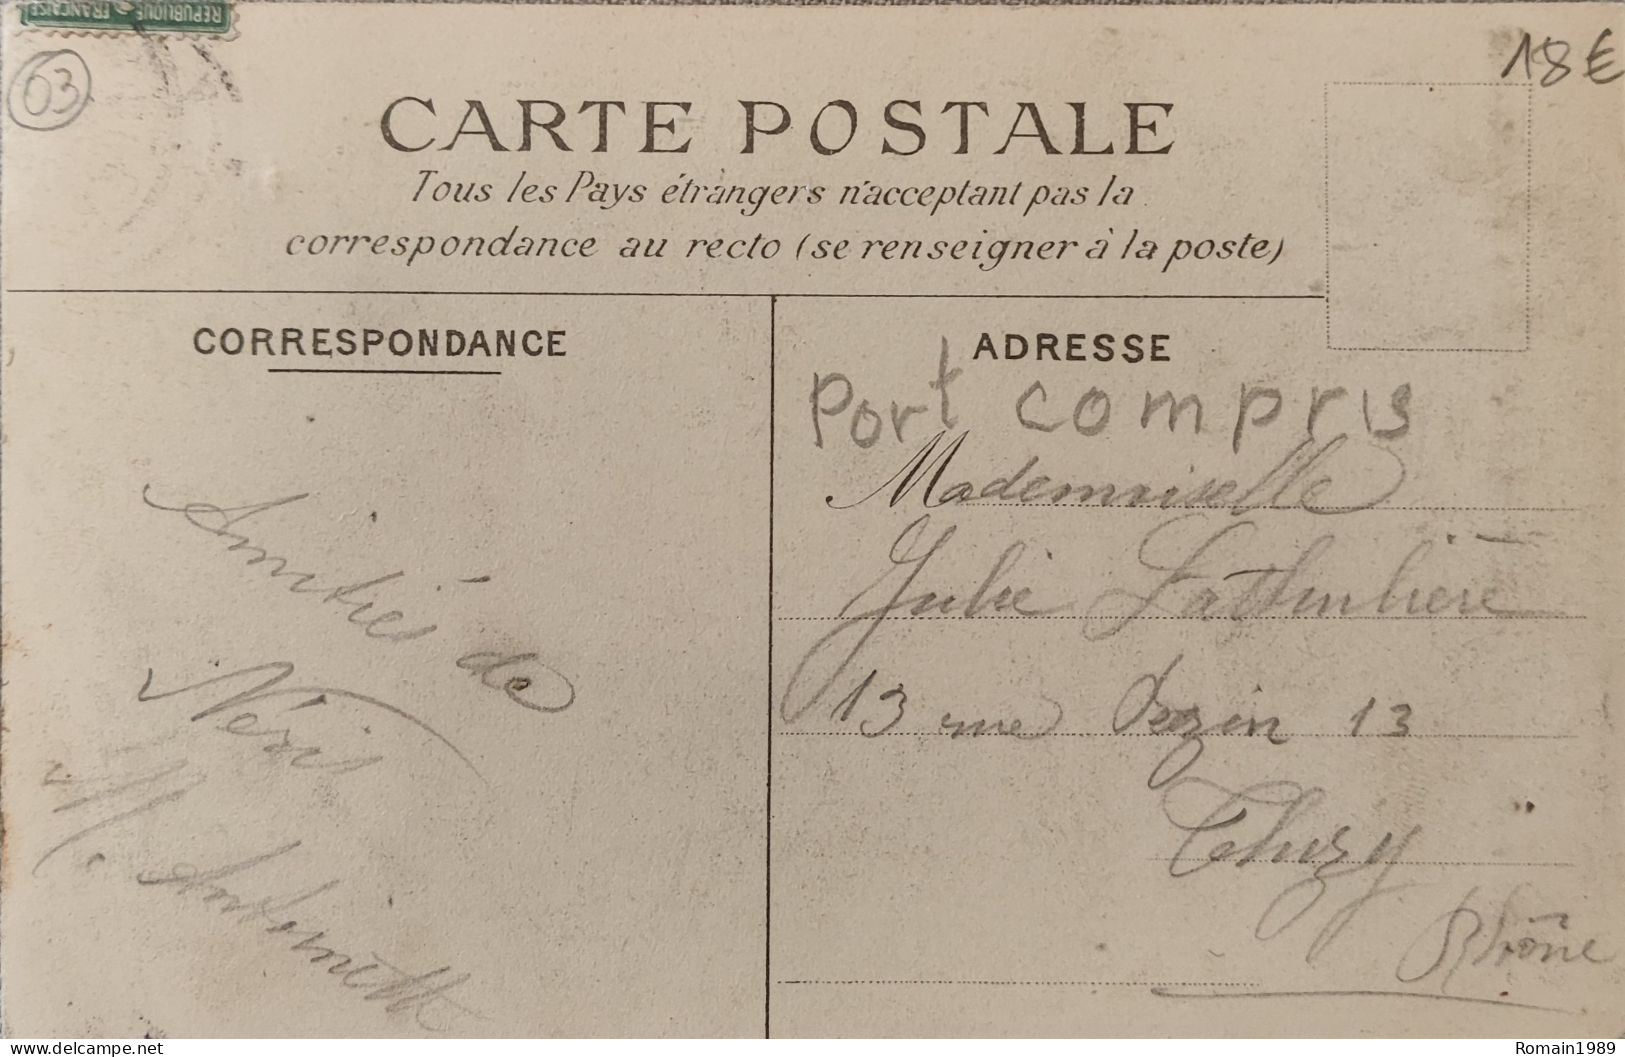 RÉPUBLIQUE FRANÇAISE
63
18€
CARTE POSTALE
Tous les Pays étrangers n'acceptant pas la
correspondance au recto (se renseigner à la poste)
CORRESPONDANCE
ADRESSE
Port compris
Mademoiselle
Julie Lathulière
13 rue 13
Thizy
Rhône
Amitiés de
Néris
M. Antoinette
Romain1989